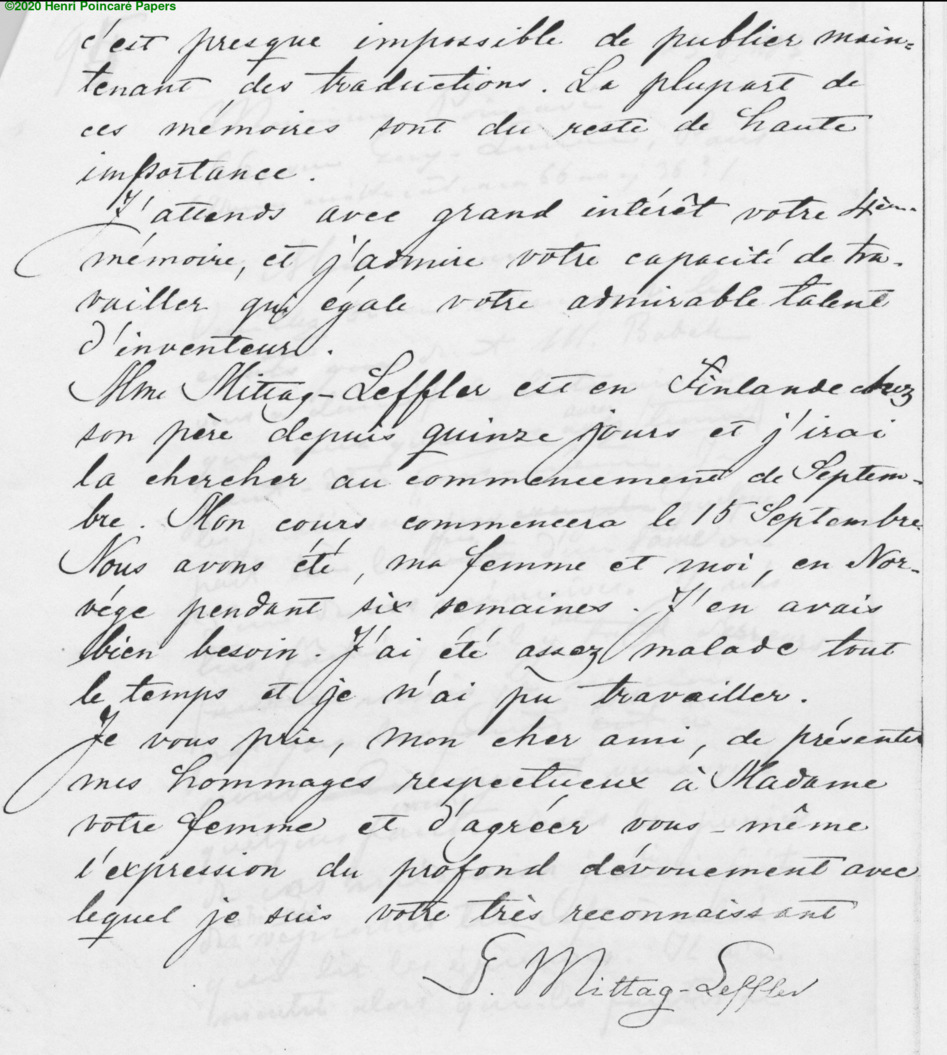 ©2020 Henri Poincaré Papers
c'est presque impossible de publier main-
tenant des traductions. La plupart de
ces mémoires sont du reste de haute
importance.
J'attends avec grand intérêt votre 4ème
mémoire, et j'admire votre capacité de tra-
vailler qui égale votre admirable talent
d'inventeur.
Mme Mittag-Leffler est en Finlande chez
son père depuis quinze jours et j'irai
la chercher au commencement de Septem-
bre. Mon cours commencera le 15 Septembre.
Nous avons été, ma femme et moi, en Nor-
vége pendant six semaines. J'en avais
bien besoin. J'ai été assez malade tout
le temps et je n'ai pu travailler.
Je vous prie, mon cher ami, de présenter
mes hommages respectueux à Madame
votre femme et d'agréer vous-même
l'expression du profond dévouement avec
lequel je suis votre très reconnaissant
G. Mittag-Leffler